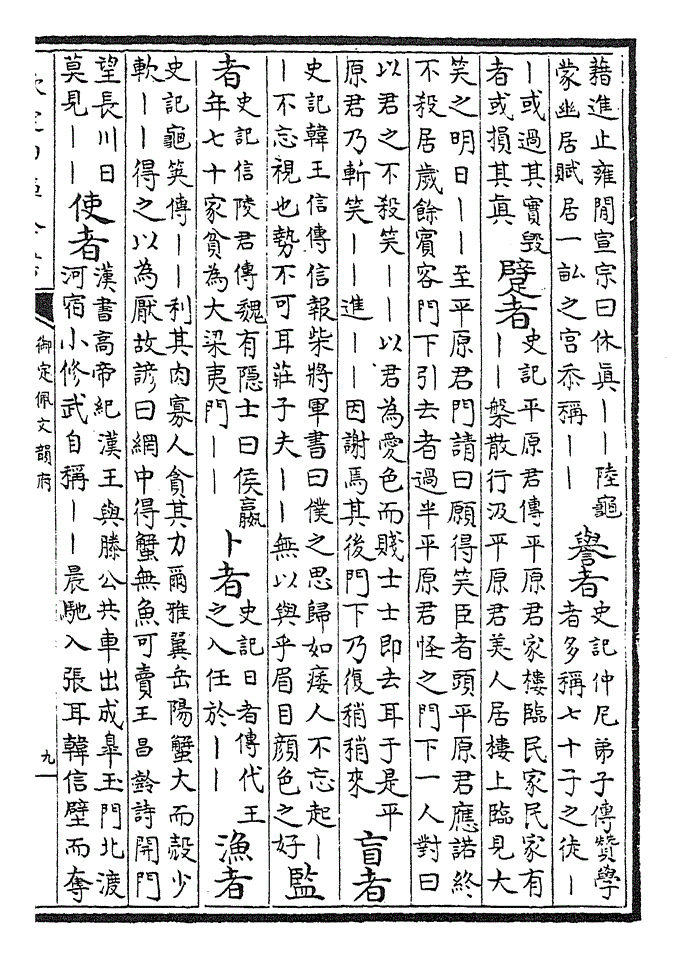 藉進止雍閒宣宗曰休真｜｜陸龜
蒙幽居賦居一畝之宫忝稱｜｜
譽者
史記仲尼弟子傳贊學
者多稱七十子之徒｜
｜或過其實毀
者或損其真
躄者
史記平原君傳平原君家樓臨民家民家有
｜｜槃散行汲平原君美人居樓上臨見大
笑之明日｜｜至平原君門請曰願得笑臣者頭平原君應諾終
不殺居歲餘賓客門下引去者過半平原君怪之門下一人對曰
以君之不殺笑｜｜以君為愛色而賤士士即去耳于是平
原君乃斬笑｜｜進｜｜因謝焉其後門下乃復稍稍來
盲者
史記韓王信傳信報柴將軍書曰僕之思歸如痿人不忘起｜
｜不忘視也勢不可耳莊子夫｜｜無以與乎眉目顔色之好
監
者
史記信陵君傳魏有隱士曰侯嬴
年七十家貧為大梁夷門｜｜
卜者
史記日者傳代王
之入任於｜｜
漁者
史記龜筴傳｜｜利其肉寡人貪其力爾雅翼岳陽蟹大而殼少
軟｜｜得之以為厭故諺曰網中得蟹無魚可賣王昌齡詩開門
望長川日
莫見｜｜
使者
漢書高帝紀漢王與滕公共車出成皋玉門北渡
河宿小修武自稱｜｜晨馳入張耳韓信壁而奪
御定佩文韻府
九